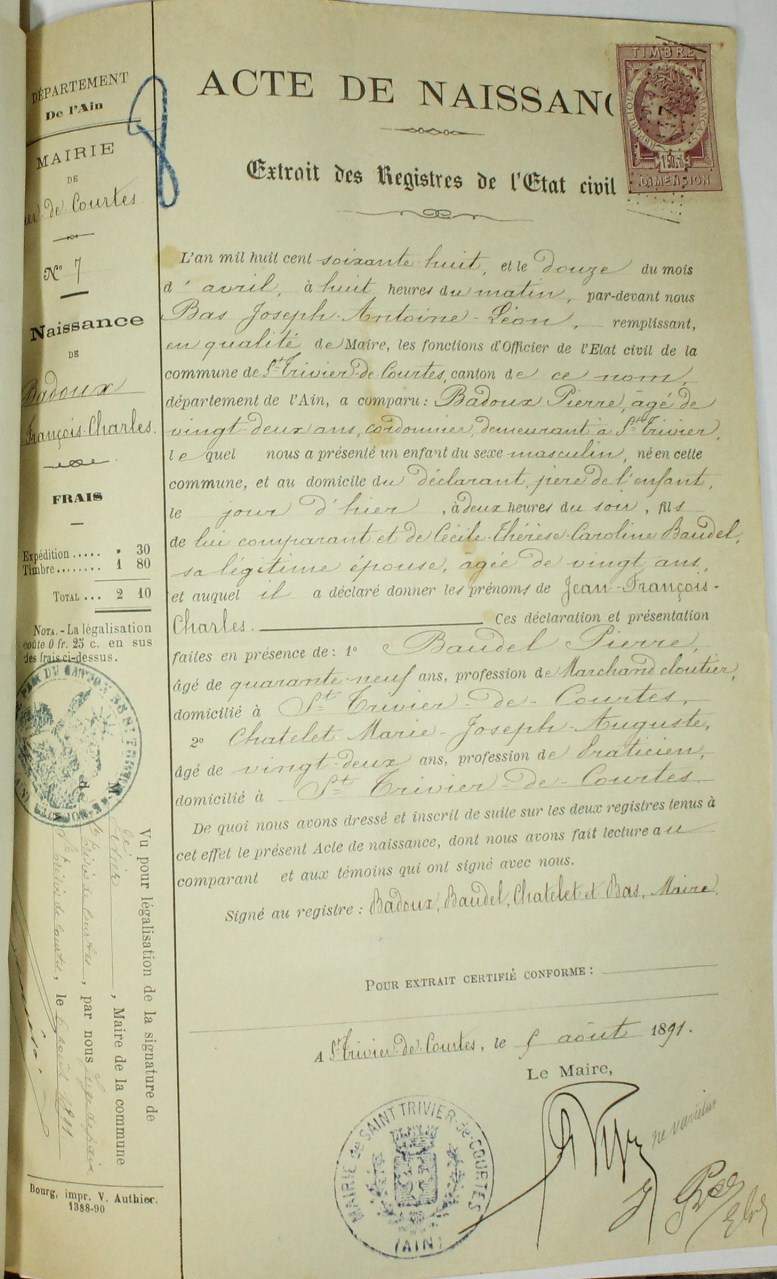 DÉPARTEMENT
De l'Ain
MAIRIE
DE
de Courtes
N° 7
Naissance
DE
Badoux
François-Charles.
FRAIS
Expédition ..... " 30
Timbre ........ 1 80
TOTAL ... 2 10
NOTA. - La légalisation
coûte 0 fr. 25 c. en sus
des frais ci-dessus.
Vu pour légalisation de la signature de
, Maire de la commune
de Courtes, par nous Juge de paix
le août 1891
Bourg, impr. V. Authier.
1388-90
ACTE DE NAISSANC
TIMBRE
DIMENSION
Extrait des Registres de l'Etat civil
L'an mil huit cent soixante huit, et le douze du mois
d'avril, à huit heures du matin, par-devant nous
Bas Joseph-Antoine-Léon, remplissant,
en qualité de Maire, les fonctions d'Officier de l'Etat civil de la
commune de St Trivier de Courtes, canton de ce nom,
département de l'Ain, a comparu : Badoux Pierre, âgé de
vingt-deux ans, cordonnier, demeurant à St Trivier,
le quel nous a présenté un enfant du sexe masculin, né en cette
commune, et au domicile du déclarant, père de l'enfant,
le jour d'hier, à deux heures du soir, fils
de lui comparant et de Cécile-Thérèse-Caroline Baudel,
sa légitime épouse, agée de vingt ans,
et auquel il a déclaré donner les prénoms de Jean-François-
Charles. Ces déclaration et présentation
faites en présence de : 1° Baudel Pierre,
âgé de quarante-neuf ans, profession de Marchand cloutier,
domicilié à St Trivier-de-Courtes,
2° Chatelet Marie-Joseph-Auguste,
âgé de vingt-deux ans, profession de Praticien,
domicilié à St Trivier-de-Courtes
De quoi nous avons dressé et inscrit de suite sur les deux registres tenus à
cet effet le présent Acte de naissance, dont nous avons fait lecture au
comparant et aux témoins qui ont signé avec nous.
Signé au registre : Badoux, Baudel, Chatelet et Bas, Maire.
POUR EXTRAIT CERTIFIÉ CONFORME :
A St Trivier-de-Courtes, le 5 août 1891.
Le Maire,
ne varietur
MAIRIE de SAINT TRIVIER-de-COURTES
(AIN)